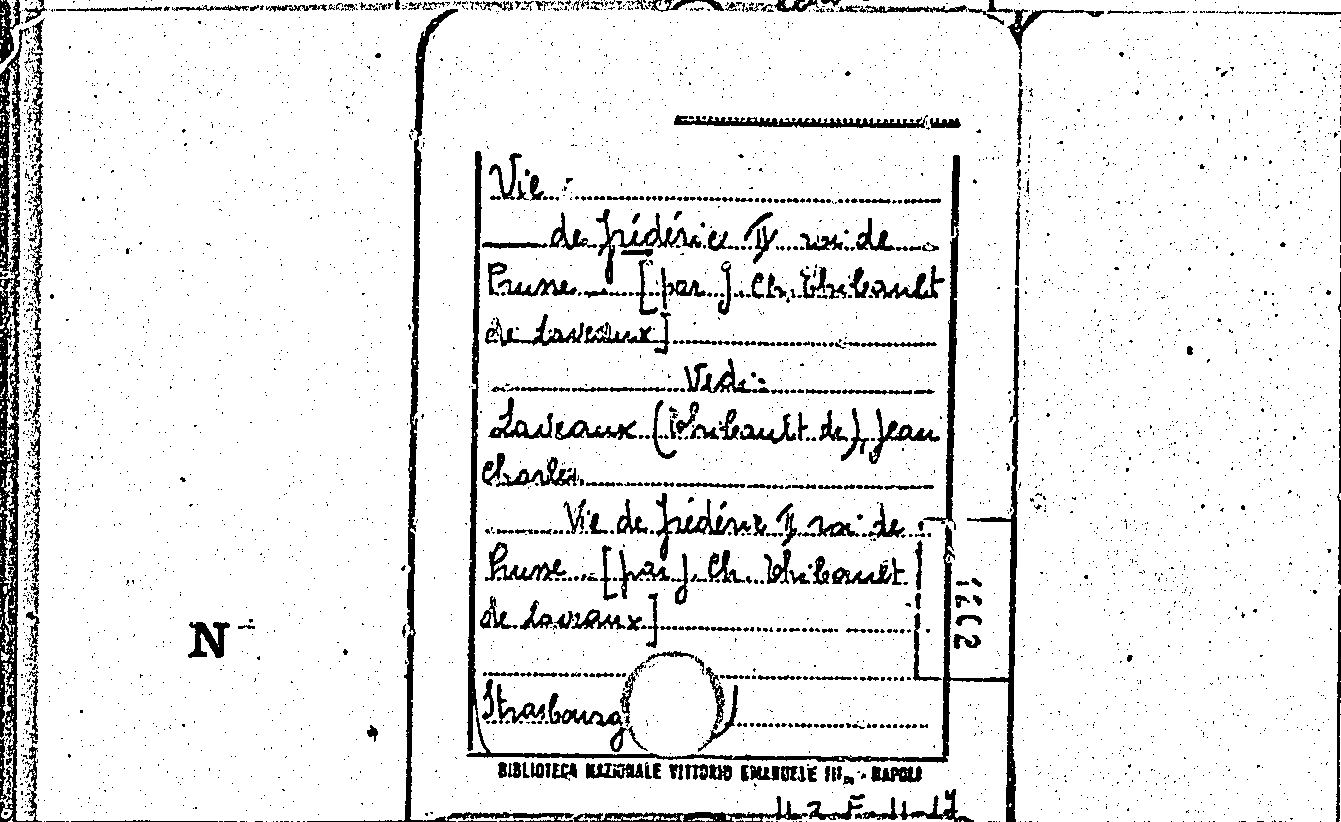 Vie
de Frédéric II roi de
Prusse [par] Ch. Thibault
de Laveaux]
Vedi:
Laveaux (Thibault de), Jean
Charles.
Vie de Frédéric II roi de
Prusse [par] Ch. Thibault
de Laveaux]
Strasbourg
N
BIBLIOTECA NAZIONALE VITTORIO EMANUELE III - NAPOLI